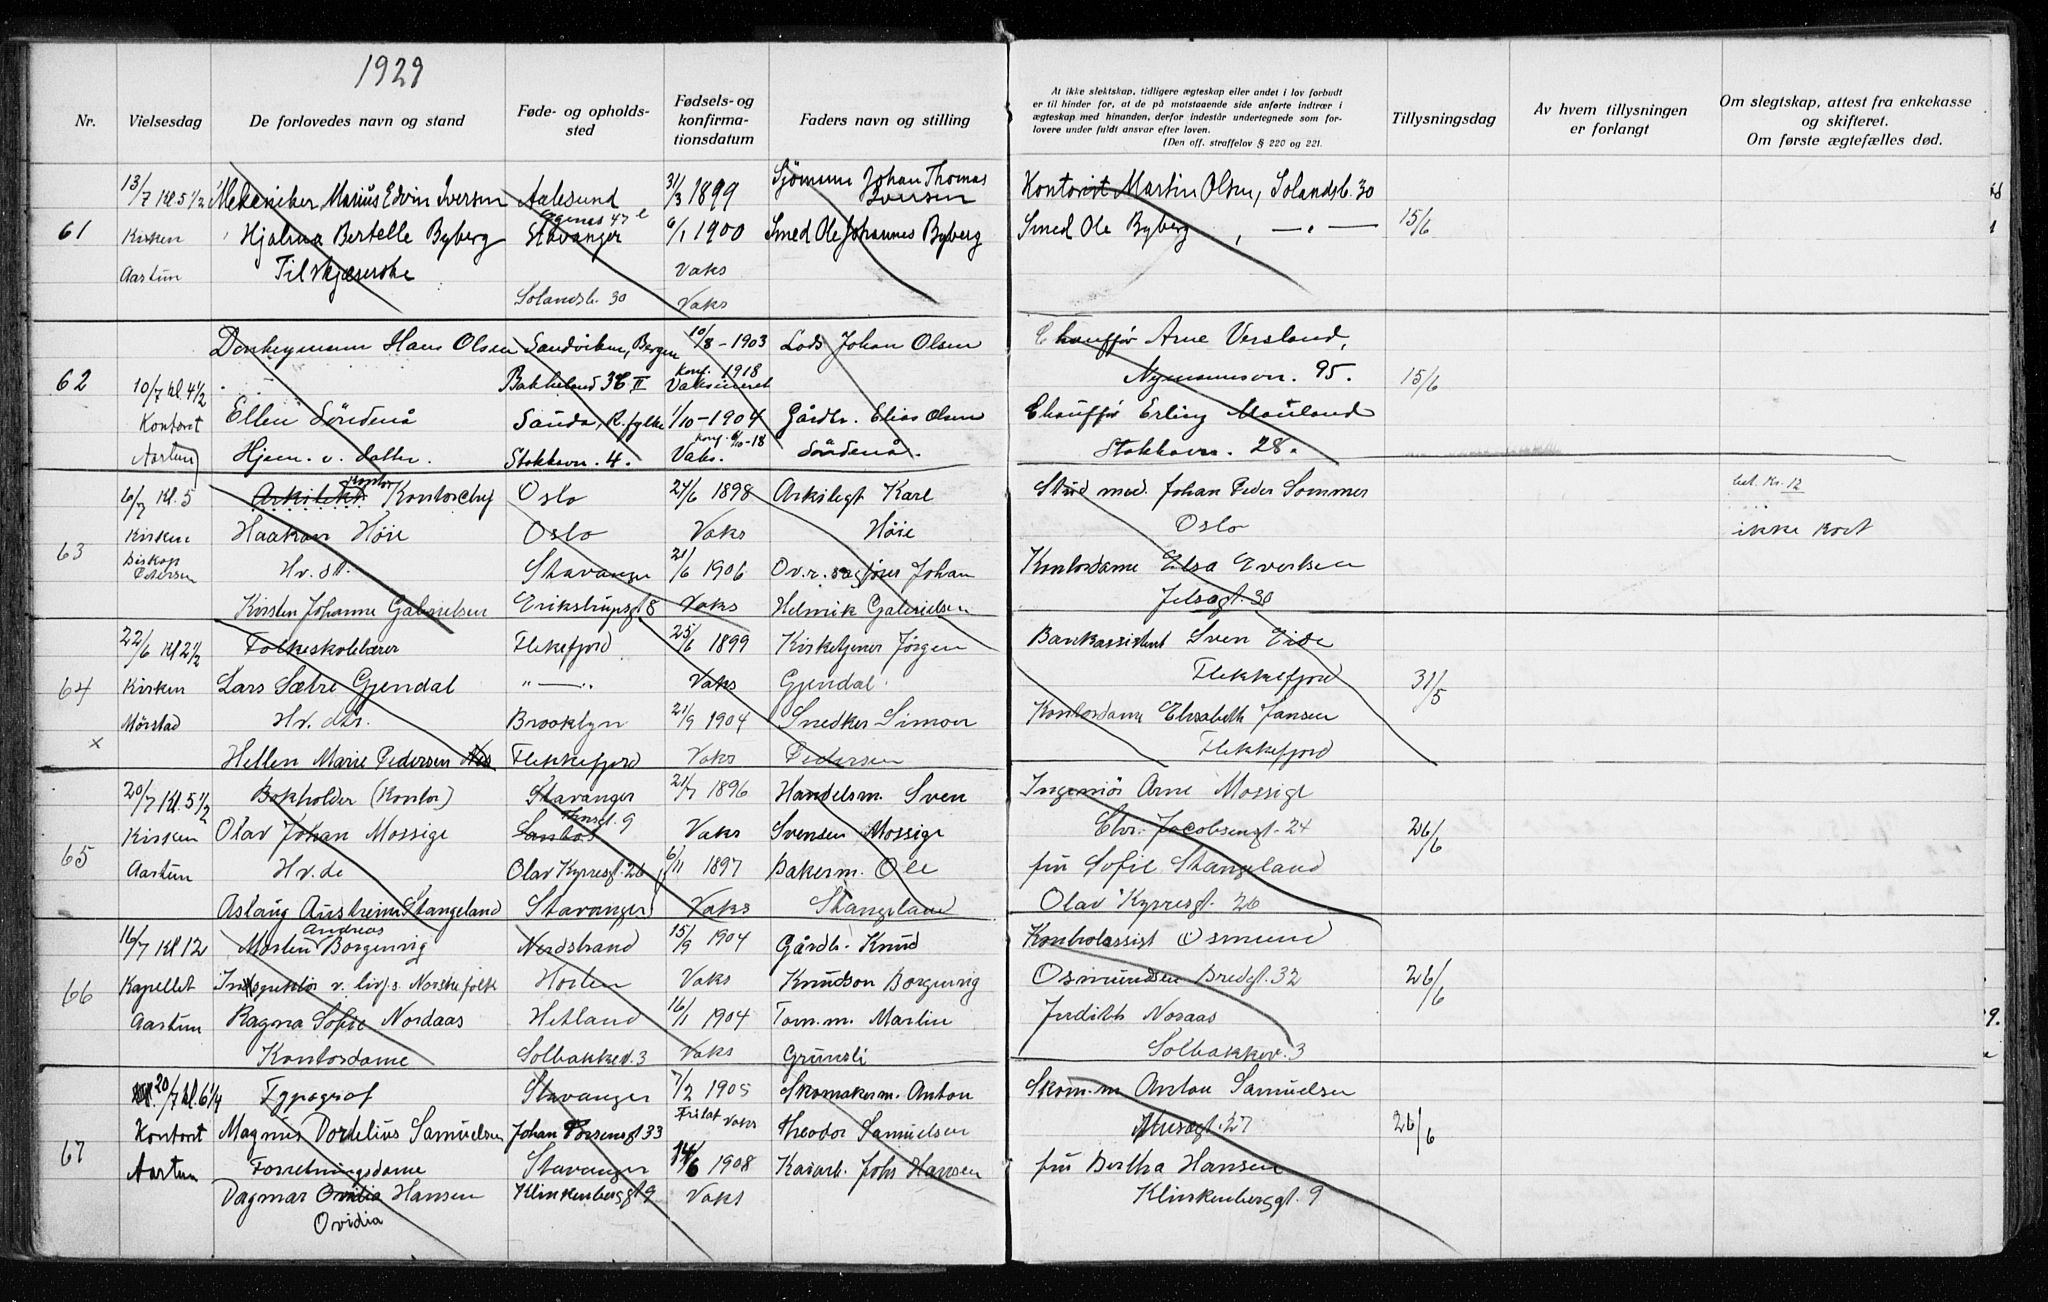 1929
Nr.
Vielsesdag
De forlovedes navn og stand
Føde- og opholds-
sted
Fødsels- og
konfirma-
tionsdatum
Faders navn og stilling
At ikke slektskap, tidligere ægteskap eller andet i lov forbudt
er til hinder for, at de på motstaaende side anførte indtrær i
ægteskap med hinanden, derfor indestår undertegnede som for-
lovere under fuldt ansvar efter loven.
(Den off. straffelov § 220 og 221.
Tillysningsdag
Av hvem tillysningen
er forlangt
Om slegtskap, attest fra enkekasse
og skifteret.
Om første ægtefælles død.
13/7 Kl 5 1/2 Mekaniker Marius Edvin Iversen Aalesund 31/3 1899 Sjømann Johan Thomas Kontorist Martin Olsen, Solandsb. 30
Iversen
61 Kirken Hjalma Bertelle Byberg Stavanger 6/1 1900 Smed Ole Johannes Byberg Smed Ole Byberg , — " — 15/6
Aartun Tilskjærerske Vaks
Solandsb. 30 Vaks
Donkeymann Hans Olsen Sandviken, Bergen 10/8 - 1903 Lods Johan Olsen Chauffør Arne Versland,
62 10/7 kl. 4 1/2 Bakkeland 36 II konf. 1918 Vaksineret Nymannsvn. 95. 15/6
Kontoret Ellen Søndenå Sauda, R. fylke 1/10 - 1904 Gårdbr. Elias Olsen Chauffør Erling Mauland
Aartun Hjem. v. datter. Stokkavn. 4. Vaks. Søndenå. Stokkavn. 28.
6/7 Kl. 5 Arkitekt Kontorchef Oslo 27/6 1898 Arkitegt Karl Stud med. Johan Peder Sommer bet. Kr. 12
Kirken Haakon Høie Oslo Vaks Høie Oslo ikke kort
63 Biskop Petersen Hv. dt. Stavanger 21/6 1906 Ov.r. sagfører Johan Kontordame Elsa Evertsen
Kirsten Johanne Gabrielsen Erikstrupsgt 8 Vaks Helmik Gabrielsen Jelsagt. 30
22/6 Kl 2 1/2 Folkeskolelærer Flekkefjord 25/6 1899 Kirketjener Jørgen Bankassistent Sven Eide
64 Kirken Lars Sætre Gjendal " — " Vaks Gjendal Flekkefjord 31/5
Mørstad Hv. dtr. Brooklyn 21/9 1904 Snedker Simon Kontordame Elisabeth Jansen
x Hellen Marie Pedersen Flekkefjord Vaks Pedersen Flekkefjord
20/7 Kl. 5 1/2 Bokholder (Kontor) Stavanger 21/7 1896 Handelsm. Sven Ingeniør Arne Mossige
Kirken Olav Johan Mossige Vaks Svensen Mossige Chr. Jacobsensgt. 24 26/6
65 Aartun Hv. de Olav Kyrresgt. 26 6/11 1897 Bakerm. Ole fru Sofie Stangeland
Aslaug Austreim Stangeland Stavanger Vaks Stangeland Olav Kyrresgt. 26
16/7 Kl 12 Morten Andreas Borgenvig Nerdstrand 15/9 1904 Gårdbr. Knud Kontorassist Osmund
66 Kapellet Inspektør v. livf.s. Norske folk Horten Vaks Knudson Borgenvig Osmundsen Bredgt. 32 26/6
Aartun Ragna Sofie Nordaas Hetland 16/11 1904 Tom.m. Martin Judith Nosaas
Kontordame Solbakkev. 3 Vaks Grunsli Solbakkev. 3
20/7 kl. 6 1/4 Typograf Stavanger 7/2 1905 Skomakerm. Anton Skom.m Anton Samuelsen
Kontoret Magnus Dordelius Samuelsen Johan Torsensgt 33 Fritat Vaks Theodor Samuelsen Musegt. 27 26/6
67 Aartun Forretningsdame Stavanger 14/6 1908 Kaiarb. Johs Hansen fru Bertha Hansen
Dagmar Hansen Klinkenberggt 9 Vaks Klinkenberggt. 9
Ovidia